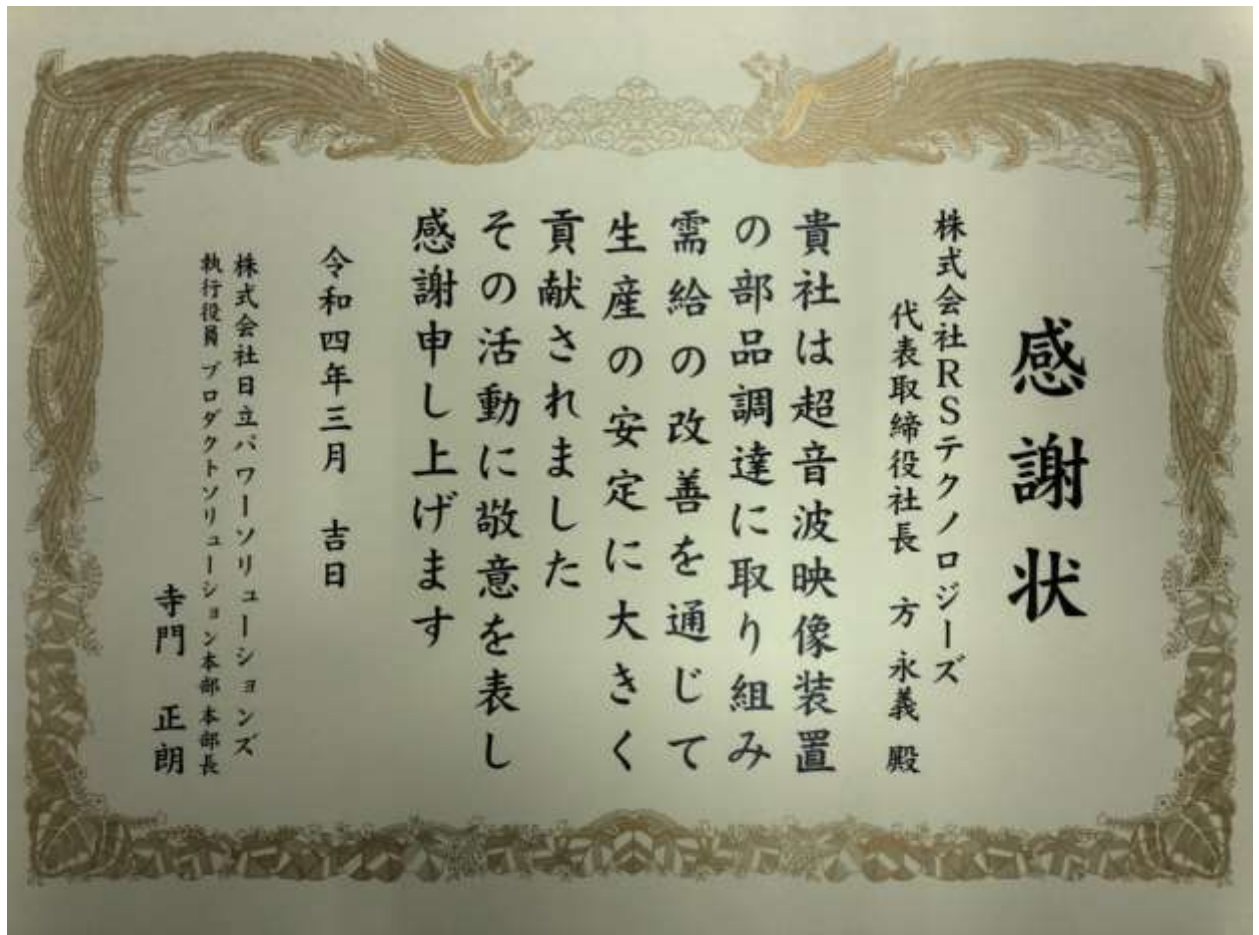 感謝状
株式会社RSテクノロジーズ
代表取締役社長 方 永義 殿
貴社は超音波映像装置
の部品調達に取り組み
需給の改善を通じて
生産の安定に大きく
貢献されました
その活動に敬意を表し
感謝申し上げます
令和四年三月 吉日
株式会社日立パワーソリューションズ
執行役員 プロダクトソリューション本部 本部長
寺門 正朗